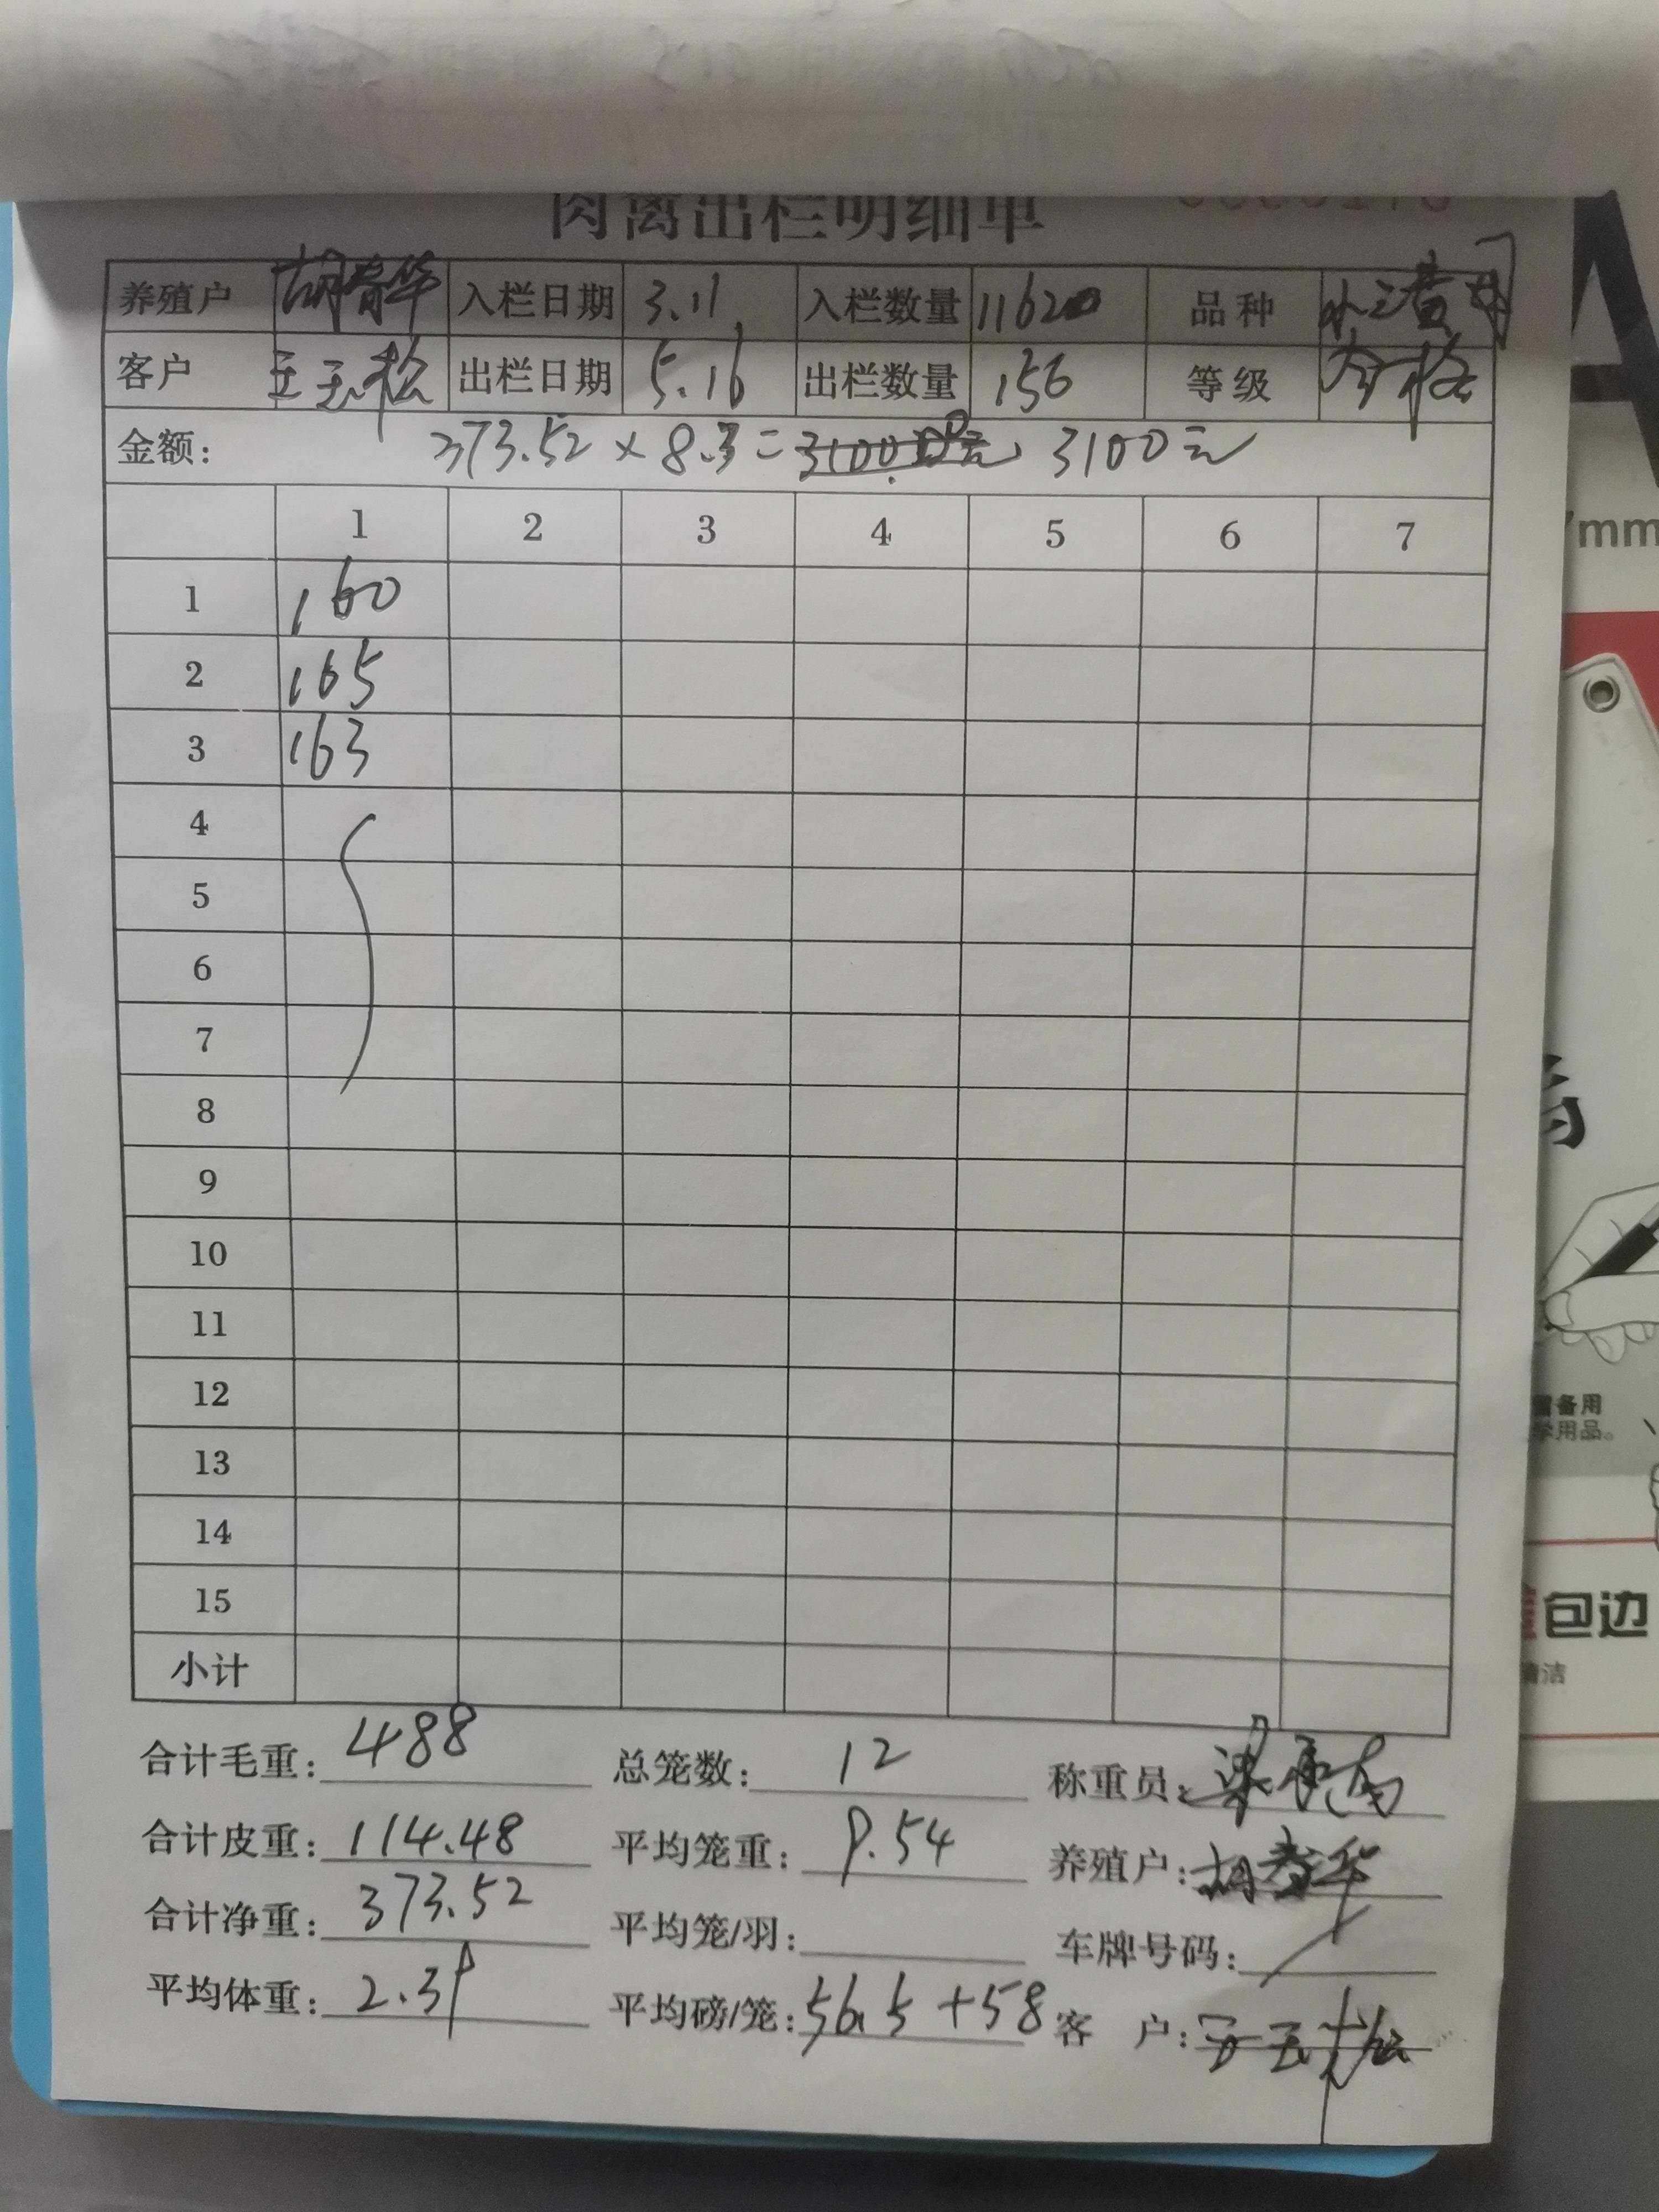 肉禽出栏明细单
养殖户 胡春华 入栏日期 3.11 入栏数量 11620 品种
客户 王玉松 出栏日期 5.16 出栏数量 156 等级 合格
金额: 373.52 × 8.3 = 3100元
1 2 3 4 5 6 7
1 160
2 165
3 163
4
5
6
7
8
9
10
11
12
13
14
15
小计
合计毛重: 488 总笼数: 12 称重员:
合计皮重: 114.48 平均笼重: 9.54 养殖户: 胡春华
合计净重: 373.52 平均笼/羽: 车牌号码:
平均体重: 2.39 平均磅/笼: 56.5 + 58 客 户: 王玉松
7mm
留备用
学用品。
包边
清洁